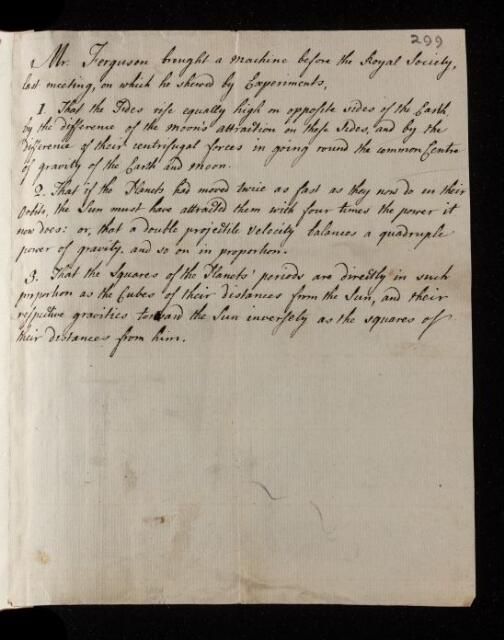 299
Mr. Ferguson brought a machine before the Royal Society,
last meeting, on which he shewed by Experiments,
1. That the Tides rise equally high on opposite sides of the Earth,
by the difference of the moon's attraction on those sides, and by the
difference of their centrifugal forces in going round the common Centre
of gravity of the Earth and moon.
2. That if the Planets had moved twice as fast as they now do in their
Orbits, the Sun must have attracted them with four times the power it
now does: or, that a double projectile Velocity balances a quadruple
power of gravity. and so on in proportion.
3. That the Squares of the Planets' periods are directly in such
proportion as the Cubes of their distances from the Sun, and their
respective gravities toward the Sun inversely as the squares of
their distances from him.